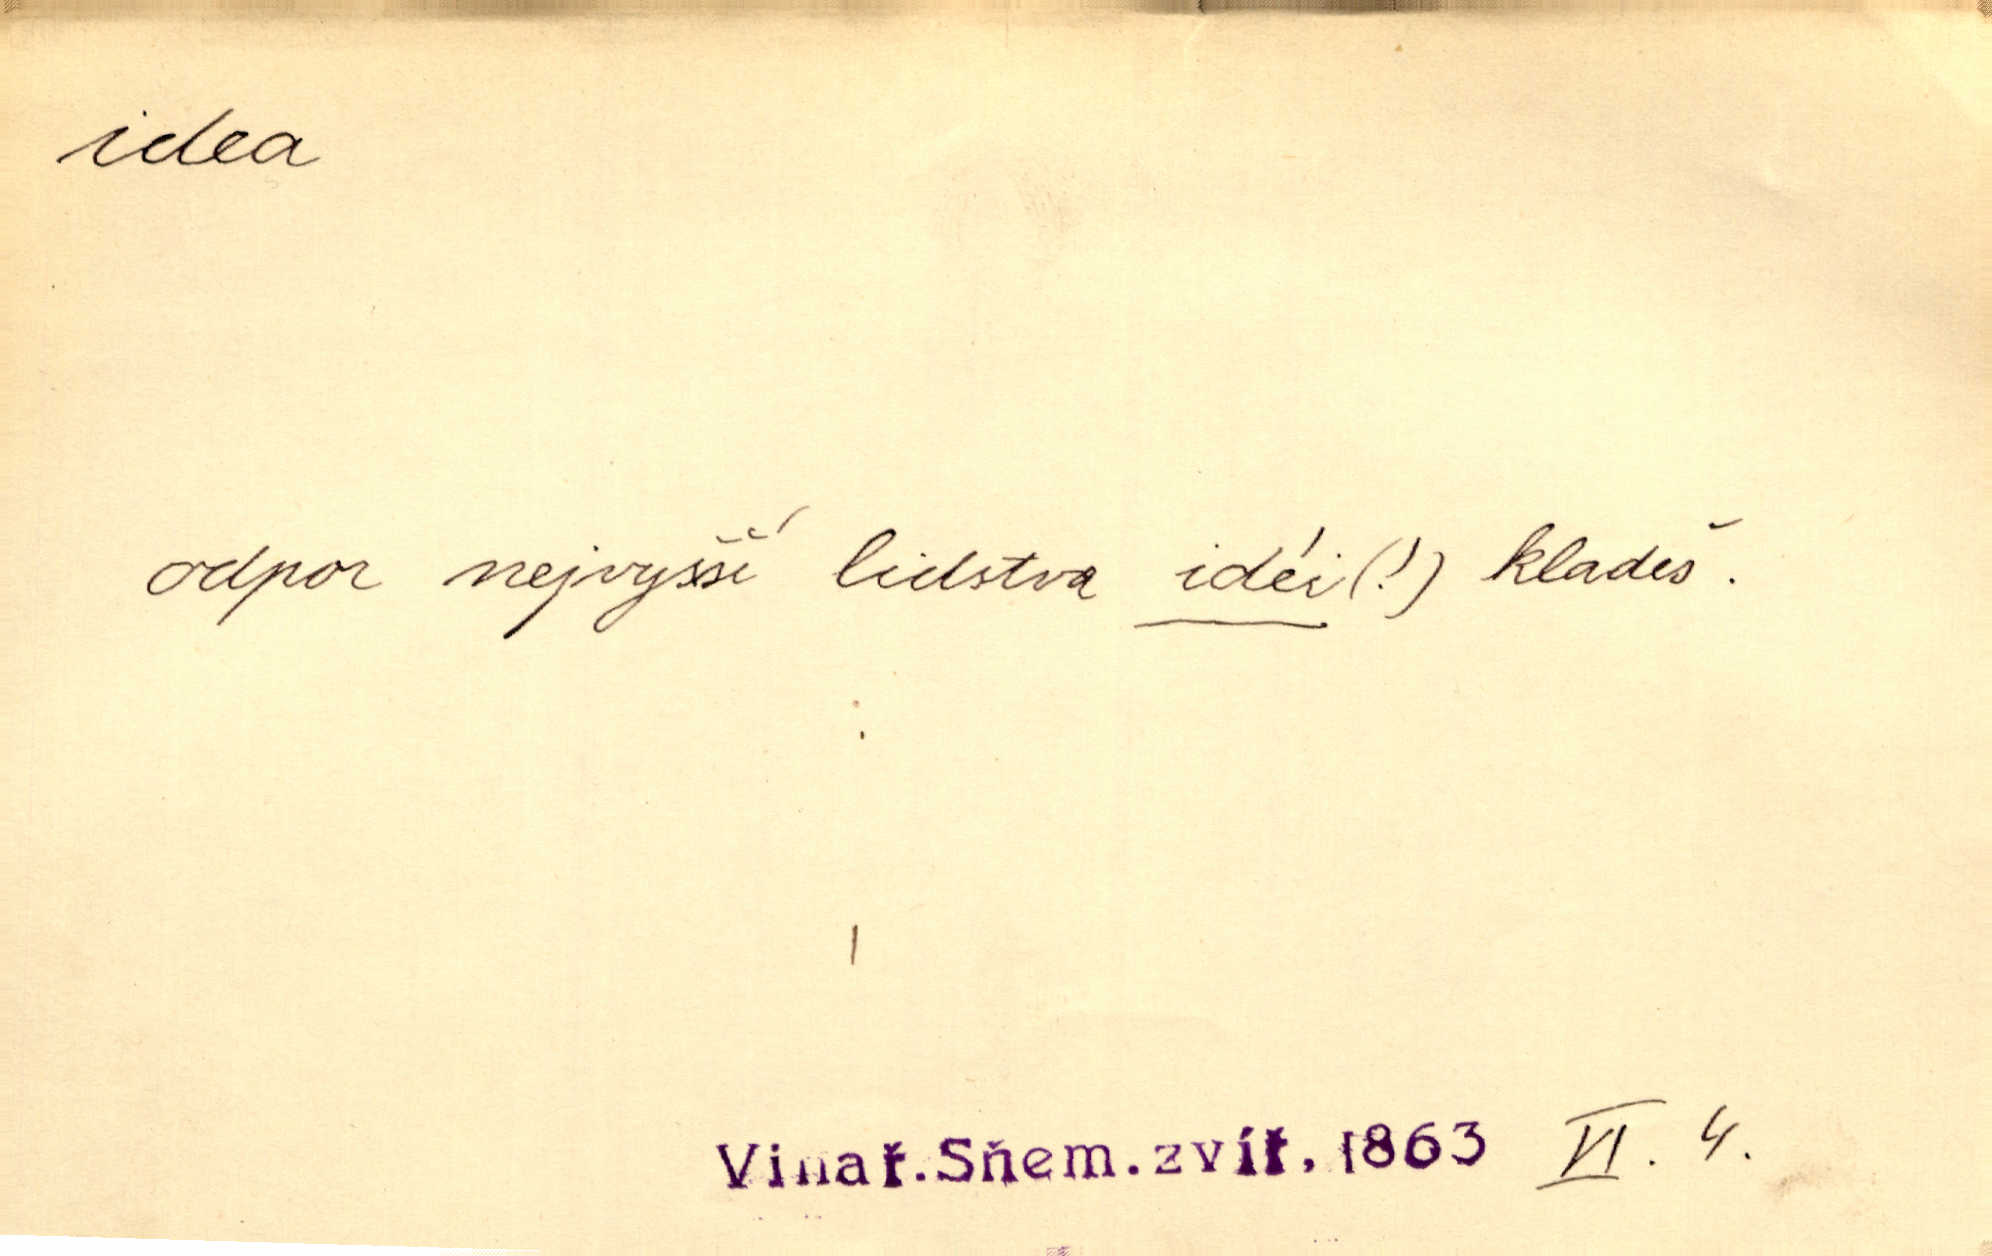 idea
odpor nejvyšší lidstva idéi (!) kladeš.
Vinař. Sněm. zvíř. 1863 VI. 4.